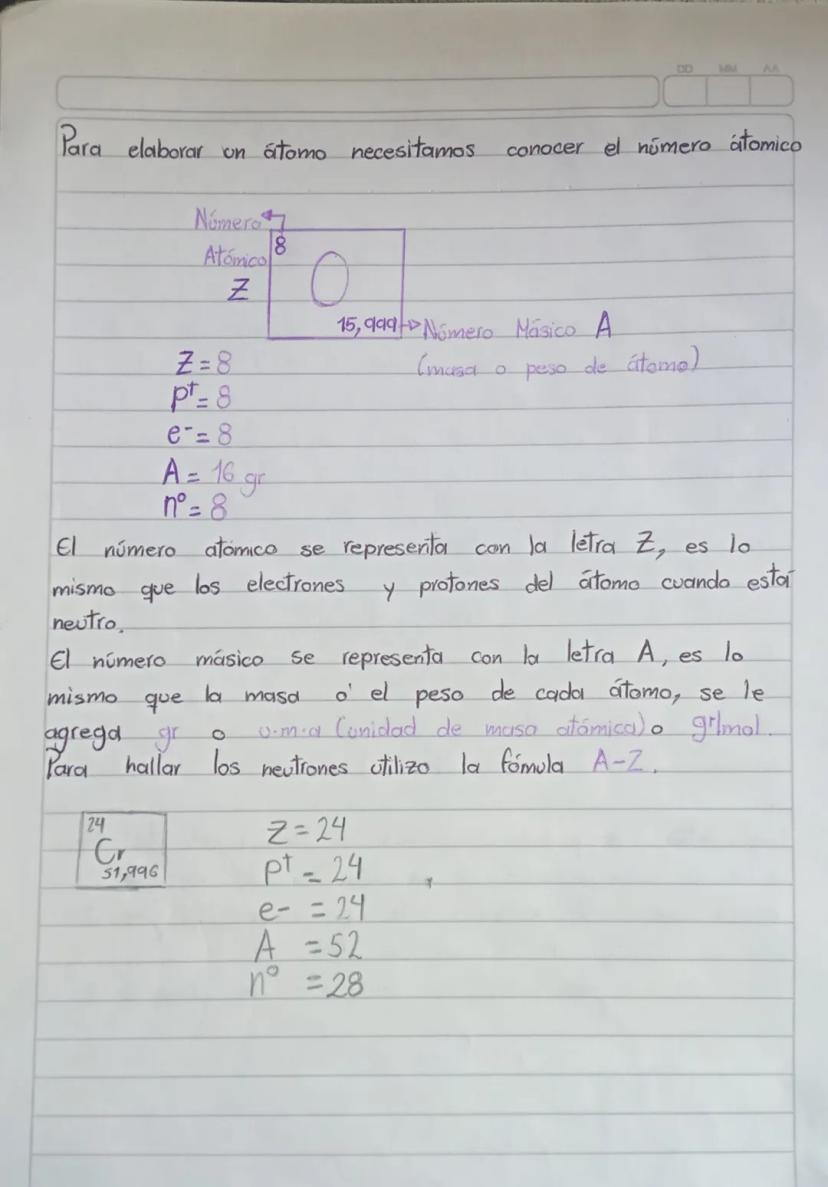 DD MM AA
Para elaborar un átomo necesitamos conocer el número átomico
Número
Atómico
8
Z
O
15,999 → Número Másico A
(masa o peso de átomo)
Z = 8
p+ = 8
e- = 8
A = 16 gr
n° = 8
El número atómico se representa con la letra Z, es lo
mismo que los electrones y protones del átomo cuando está
neutro.
El número másico se representa con la letra A, es lo
mismo que la masa o' el peso de cada átomo, se le
agrega gr o u.m.a (unidad de masa atómica) o gr/mol.
Para hallar los neutrones utilizo la fómula A-Z.
24
Cr
51,996
Z = 24
p+ = 24
e- = 24
A = 52
n° = 28